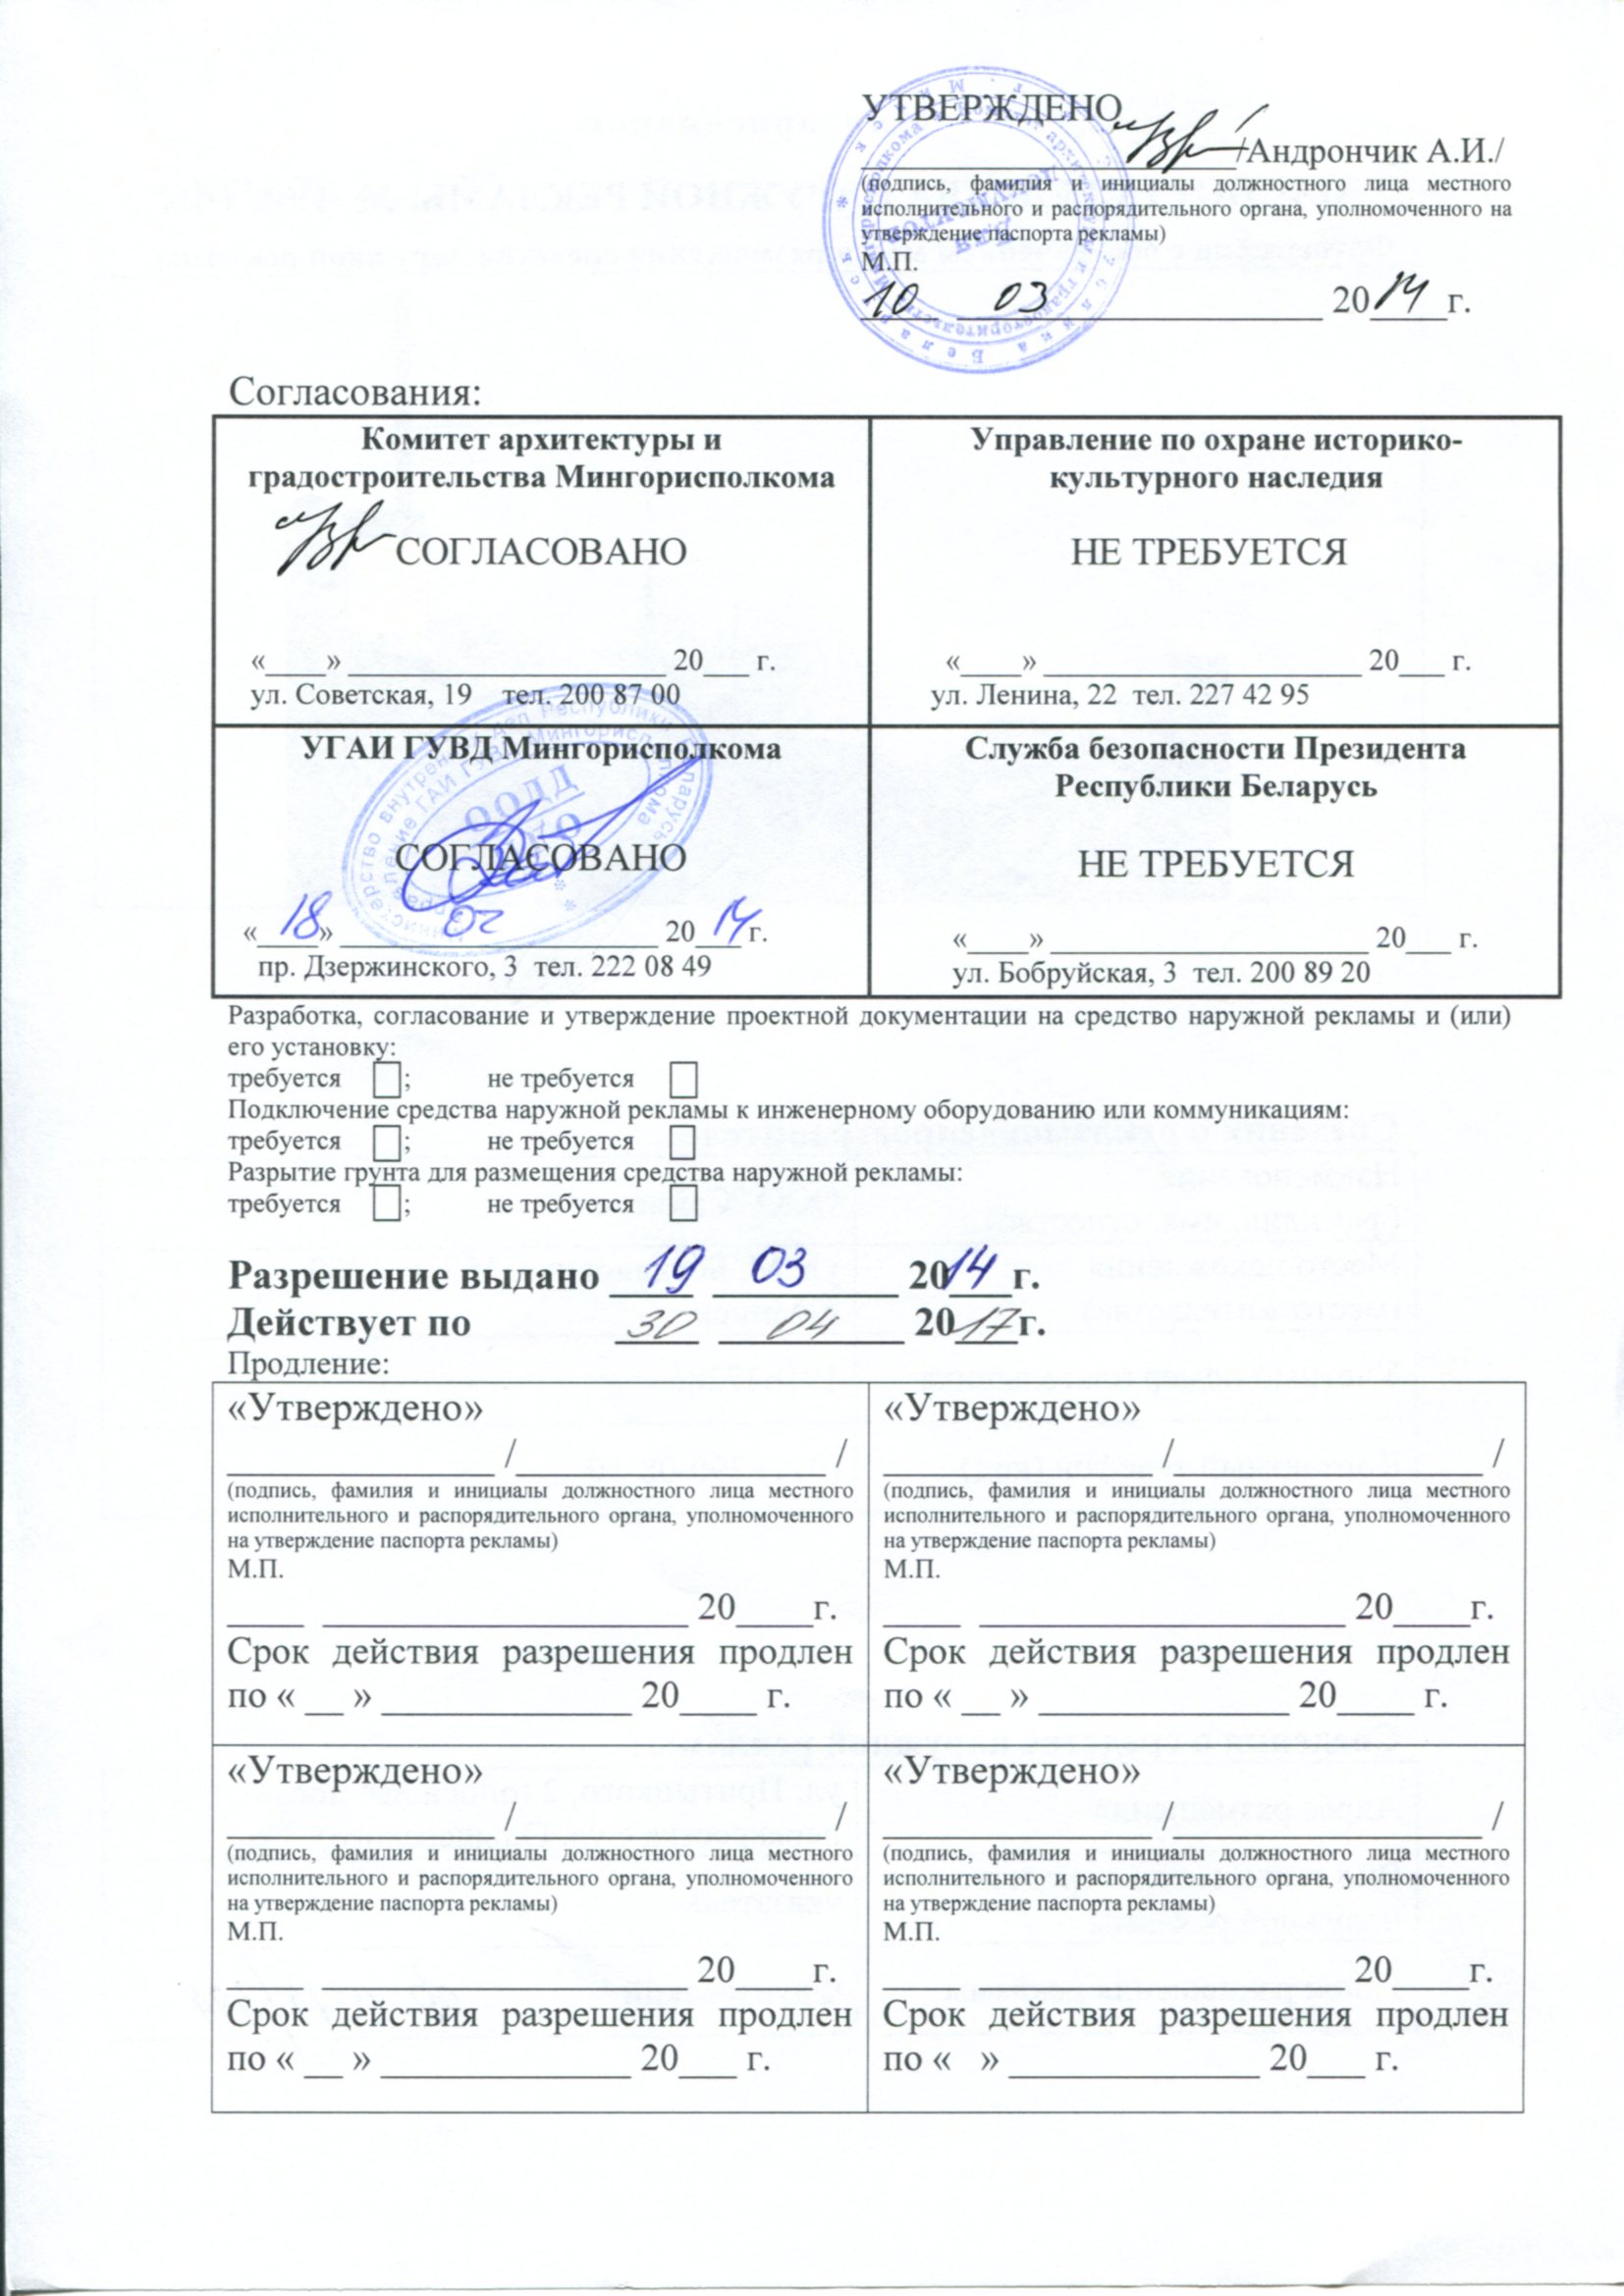 УТВЕРЖДЕНО
/Андрончик А.И./
(подпись, фамилия и инициалы должностного лица местного
исполнительного и распорядительного органа, уполномоченного на
утверждение паспорта рекламы)
М.П.
10 03 2014г.
Согласования:
Комитет архитектуры и
градостроительства Мингорисполкома
СОГЛАСОВАНО
«____» ____________________ 20___ г.
ул. Советская, 19 тел. 200 87 00
Управление по охране историко-
культурного наследия
НЕ ТРЕБУЕТСЯ
«____» ____________________ 20___ г.
ул. Ленина, 22 тел. 227 42 95
УГАИ ГУВД Мингорисполкома
ООДД
СОГЛАСОВАНО
«18» 02 2014 г.
пр. Дзержинского, 3 тел. 222 08 49
Служба безопасности Президента
Республики Беларусь
НЕ ТРЕБУЕТСЯ
«____» ____________________ 20___ г.
ул. Бобруйская, 3 тел. 200 89 20
Разработка, согласование и утверждение проектной документации на средство наружной рекламы и (или)
его установку:
требуется ; не требуется
Подключение средства наружной рекламы к инженерному оборудованию или коммуникациям:
требуется ; не требуется
Разрытие грунта для размещения средства наружной рекламы:
требуется ; не требуется
Разрешение выдано 19 03 2014г.
Действует по 30 04 2017г.
Продление:
«Утверждено»
______________ /________________ /
(подпись, фамилия и инициалы должностного лица местного
исполнительного и распорядительного органа, уполномоченного
на утверждение паспорта рекламы)
М.П.
____ ___________________ 20____г.
Срок действия разрешения продлен
по « __ » _____________ 20____ г.
«Утверждено»
______________ /________________ /
(подпись, фамилия и инициалы должностного лица местного
исполнительного и распорядительного органа, уполномоченного
на утверждение паспорта рекламы)
М.П.
____ ___________________ 20____г.
Срок действия разрешения продлен
по « __ » _____________ 20____ г.
«Утверждено»
______________ /________________ /
(подпись, фамилия и инициалы должностного лица местного
исполнительного и распорядительного органа, уполномоченного
на утверждение паспорта рекламы)
М.П.
____ ___________________ 20____г.
Срок действия разрешения продлен
по « __ » _____________ 20___ г.
«Утверждено»
______________ /________________ /
(подпись, фамилия и инициалы должностного лица местного
исполнительного и распорядительного органа, уполномоченного
на утверждение паспорта рекламы)
М.П.
____ ___________________ 20____г.
Срок действия разрешения продлен
по « » _____________ 20___ г.